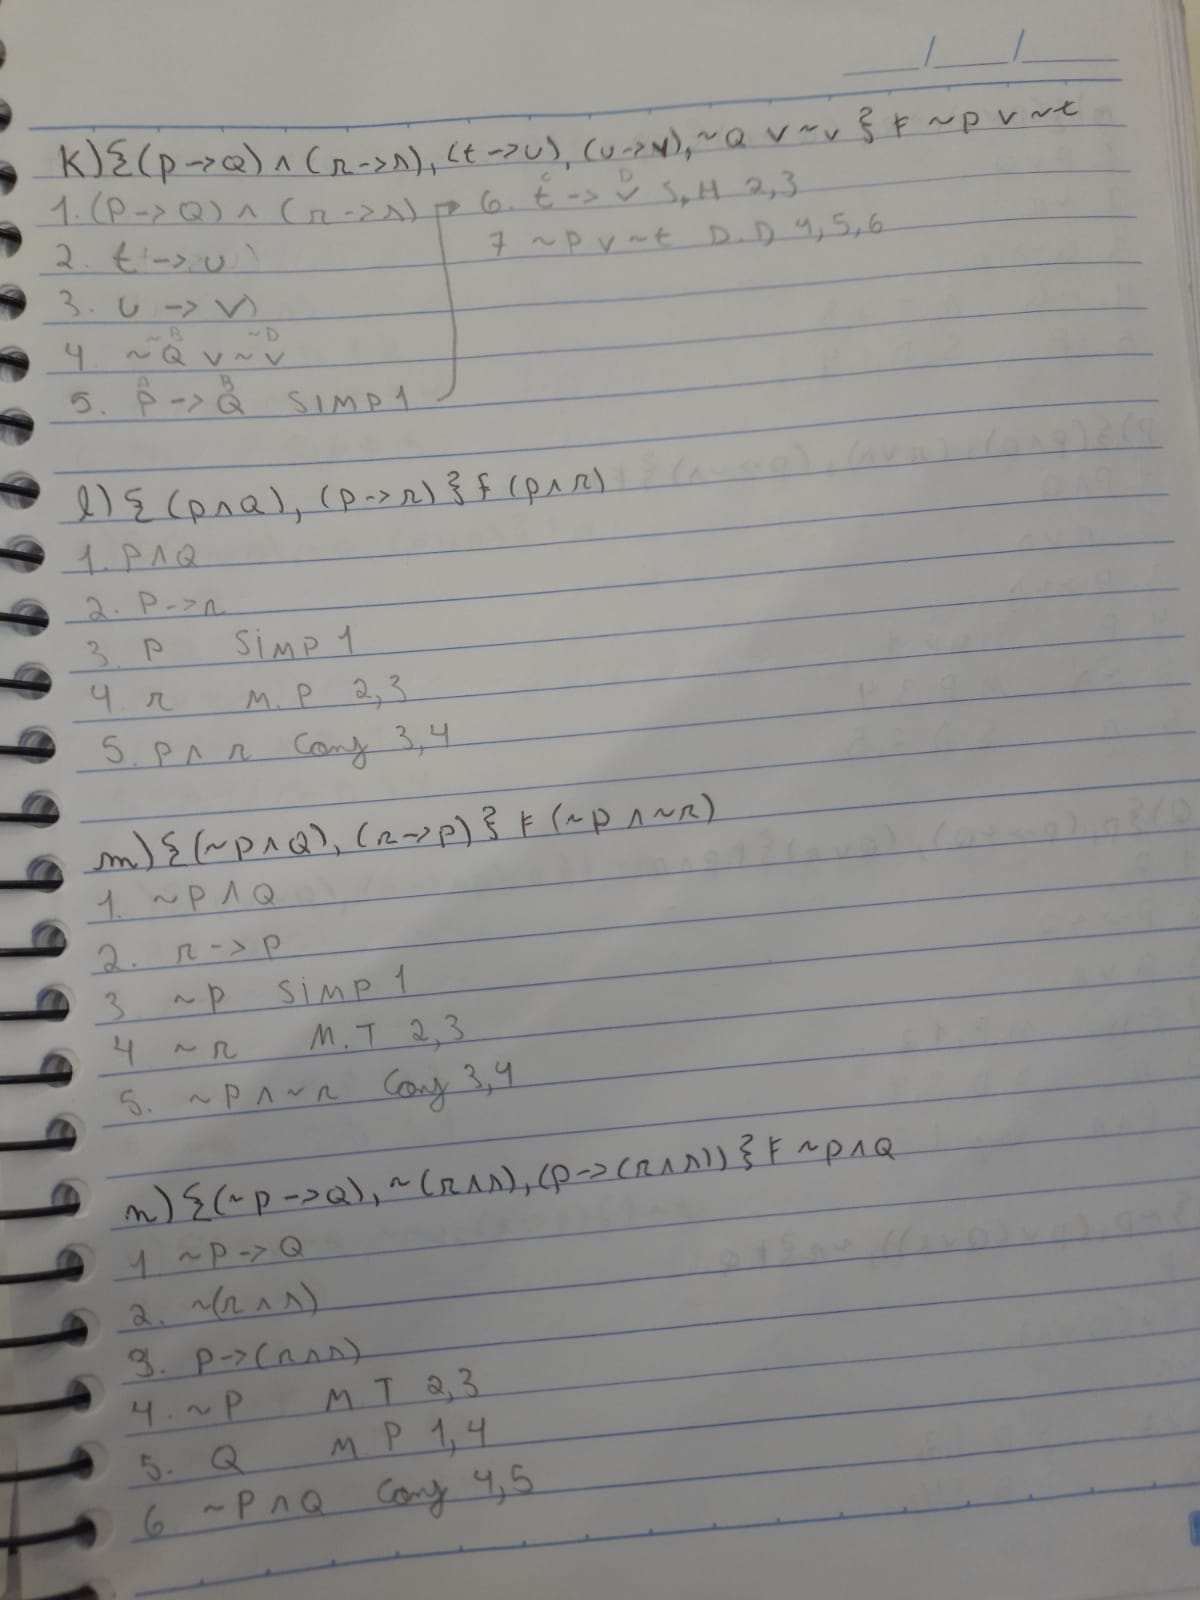 K) {(P->Q) ∧ (r->s), (t->u), (u->v), ~Q v ~v } ⊧ ~p v ~t
1. (P->Q) ∧ (r->s)
2. t -> u
3. u -> v
~B ~D
4 ~Q v ~v
A B
5. P -> Q SIMP 1
C D
6. t -> v S.H 2,3
7 ~P v ~t D.D 4,5,6
l) { (p∧Q), (P->r) } ⊧ (p∧r)
1. P∧Q
2. P->r
3. P SiMP 1
4. r M.P 2,3
5. P∧r Conj 3,4
m) {(~p∧Q), (r->p) } ⊧ (~p∧~r)
1. ~P∧Q
2. r -> p
3 ~p SiMP 1
4 ~r M.T 2,3
5. ~P∧~r Conj 3,4
n) {(~p->Q), ~(r∧s), (p->(r∧s)) } ⊧ ~p∧Q
1 ~P->Q
2. ~(r∧s)
3. P->(r∧s)
4. ~P M T 2,3
5. Q M P 1,4
6 ~P∧Q Conj 4,5